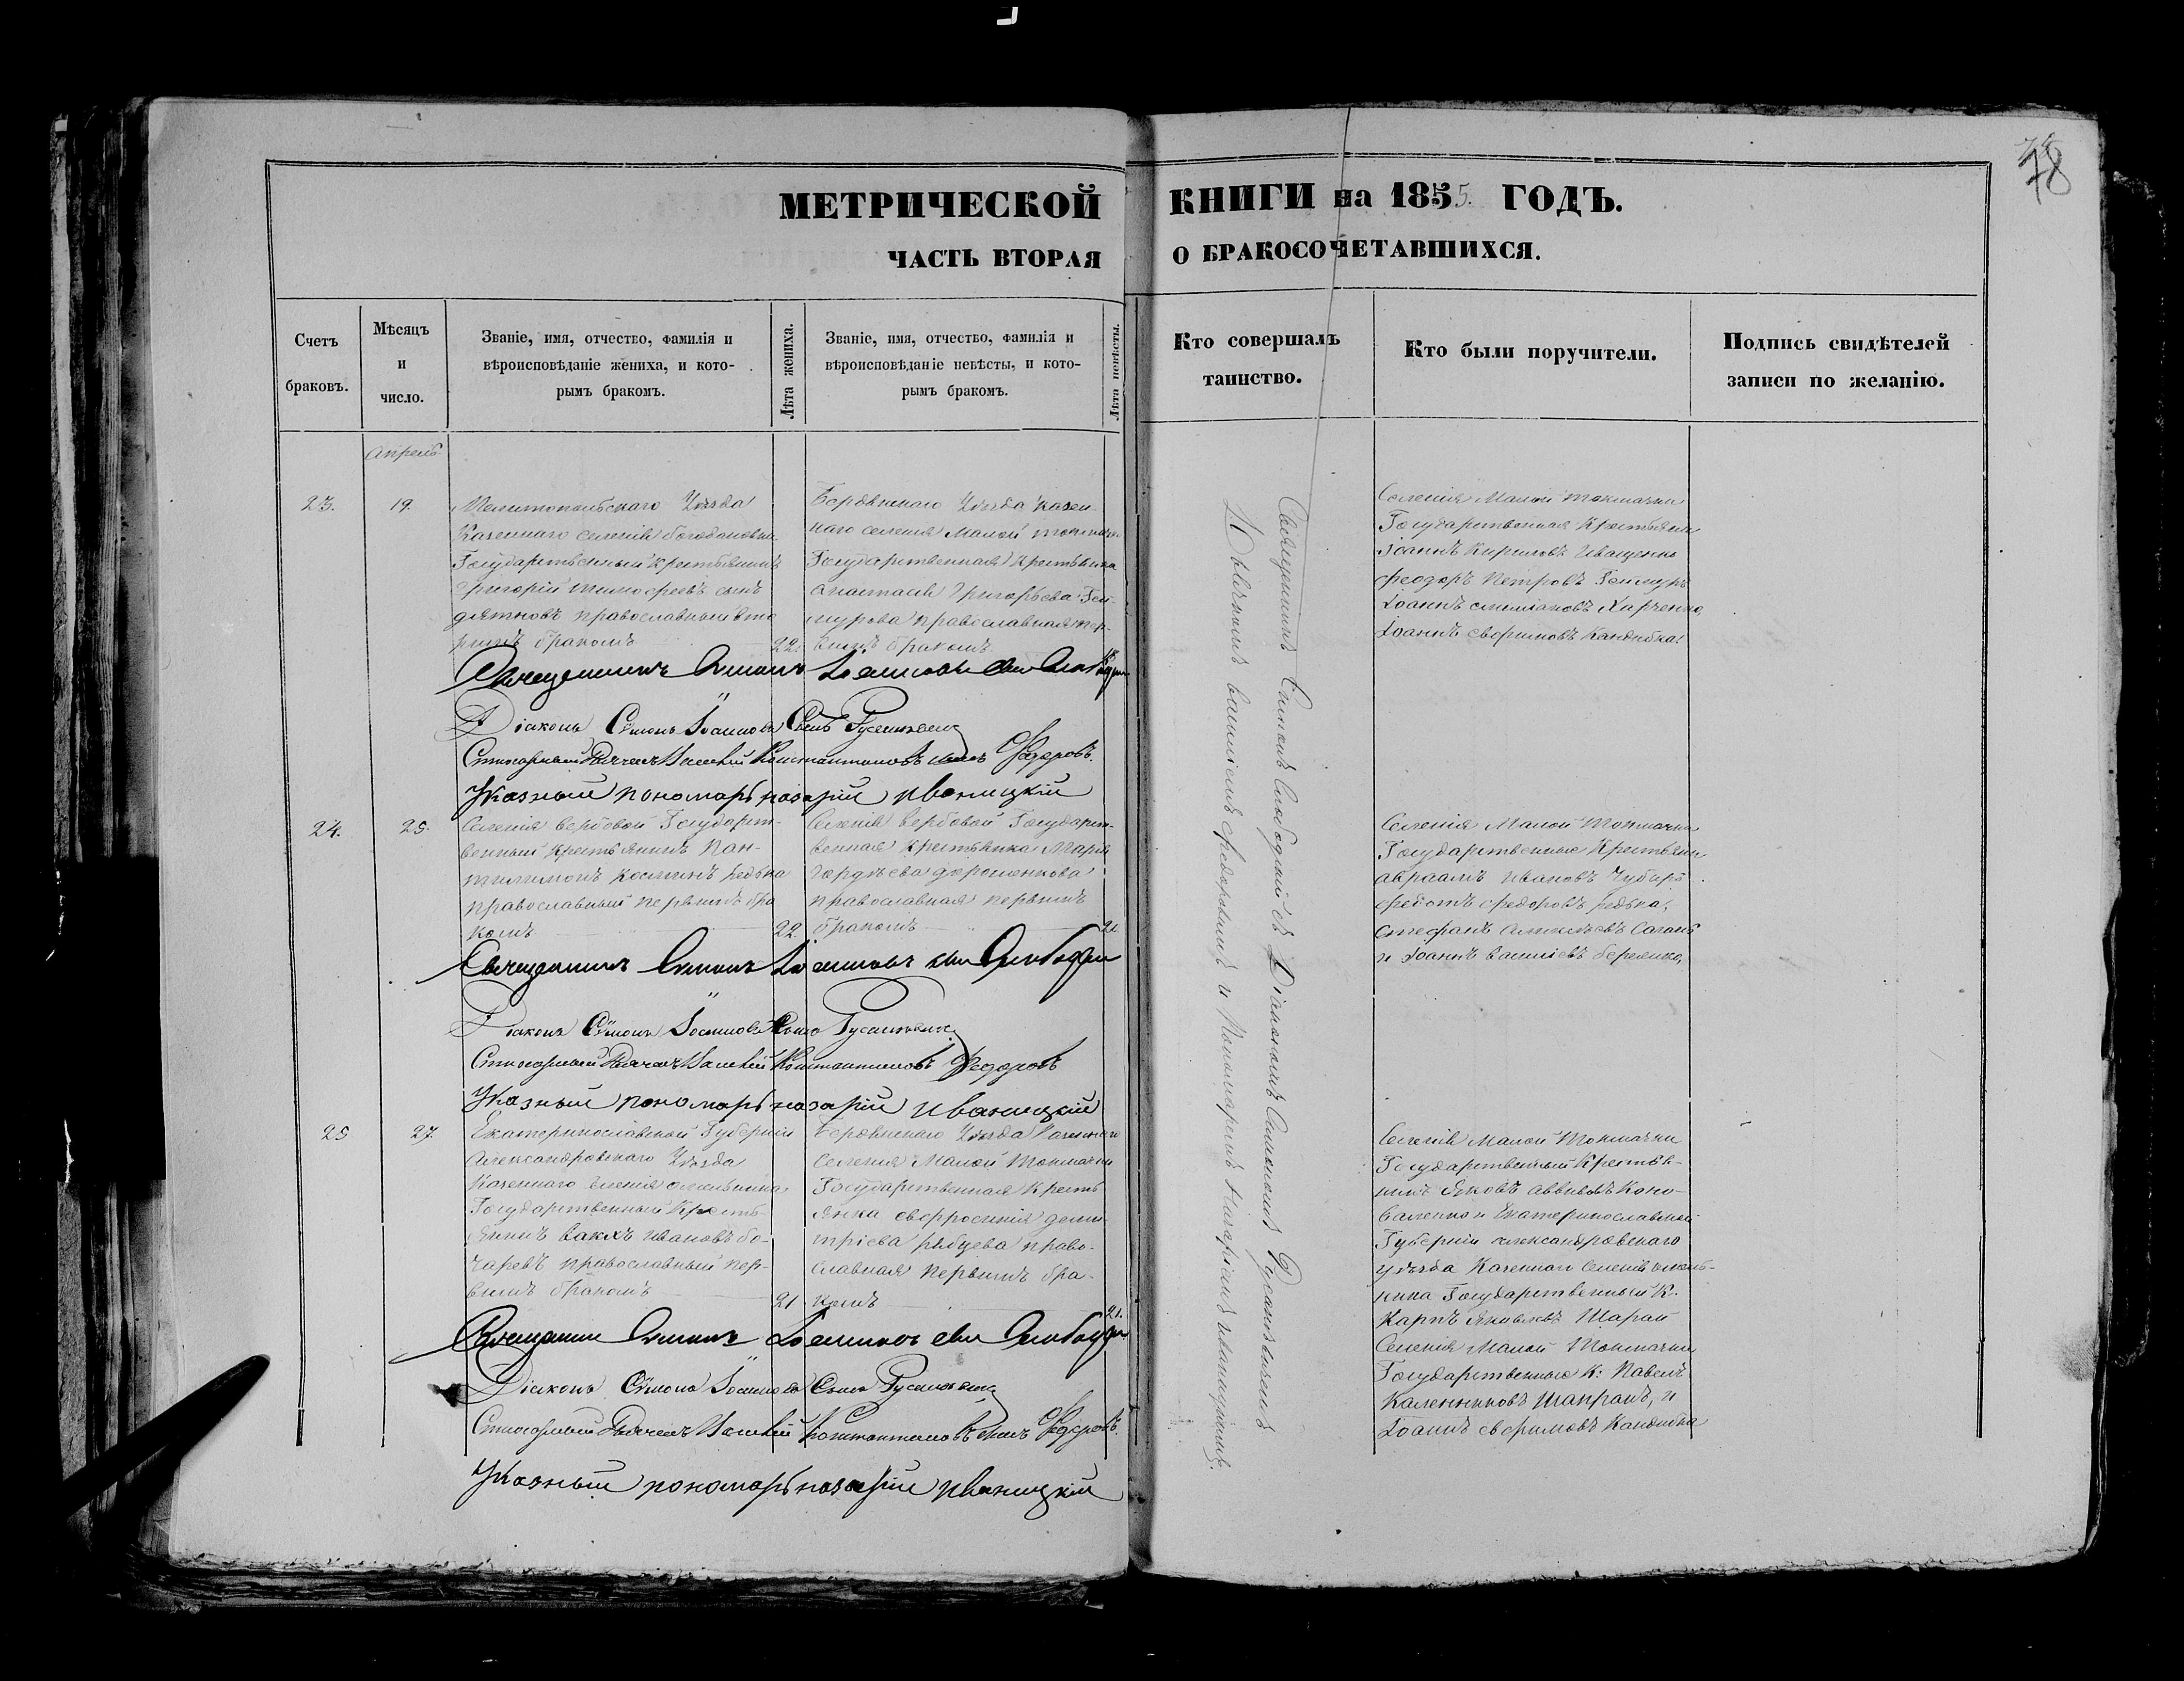 78
МЕТРИЧЕСКОЙ КНИГИ на 1855. ГОДЪ.
ЧАСТЬ ВТОРАЯ О БРАКОСОЧЕТАВШИХСЯ.
Счетъ браковъ.
Мѣсяцъ и число.
Званіе, имя, отчество, фамилія и
вѣроисповѣданіе жениха, и кото-
рымъ бракомъ.
Лѣта жениха.
Званіе, имя, отчество, фамилія и
вѣроисповѣданіе невѣсты, и кото-
рымъ бракомъ.
Лѣта невѣсты.
Кто совершалъ
таинство.
Кто были поручители.
Подпись свидѣтелей
записи по желанію.
Апрель
23.
19.
Мелитопольскаго Уѣзда
Казеннаго селенія
Государственный крестьянинъ
Григорій Тимофеевъ сынъ
православный вто
рымъ бракомъ
22.
Бердянскаго Уѣзда казен-
наго селенія Малой Токмачки
Государственная крестьянка
Анастасія Григорьева Гей-
мурова православная пер-
вымъ бракомъ
Селенія Малой Токмачки
Государственная Крестьяни
Іоаннъ Кириловъ Иващенко
Феодоръ Петровъ
Іоаннъ Харченко
Іоаннъ Ефримовъ Кандиба
Священникъ Симонъ Іоанновъ сынъ
Діаконъ Сѵмонъ Іоанновъ Сынъ Русановичъ
Стихарный Дьячекъ Василій Константиновъ сынъ Федоровъ.
Указный пономарь Назарій Иваницкій
24.
25.
Селенія Вербовой Государст-
венный Крестьянинъ Пан-
тилимонъ Косминъ Редька
православный первымъ бра
комъ
22.
Селенія Вербовой Государст-
венная крестьянка Марія
Гордѣева Дорошенкова
православная первымъ
бракомъ
21
Селенія Малой Токмачки
Государственные Крестьяни
Авраамъ Ивановъ
Федотъ Федоровъ Редька,
Стефанъ Саганъ
и Іоаннъ Василіевъ
Священникъ Симонъ Іоанновъ сынъ
Діаконъ Сѵмонъ Іоанновъ Сынъ Русановичъ
Стихарный Дьячекъ Василій Константиновъ Федоровъ
Указный пономарь Назарій Иваницкій
25
27.
Екатеринославской Губерніи
Александровскаго Уѣзда
Казеннаго селенія Омельника
Государственный Кресть-
янинъ Вакхъ Ивановъ Бо-
чаревъ православный пер-
вымъ бракомъ
21
Бердянскаго Уѣзда Казеннаго
Селенія Малой Токмачки
Государственная Кресть
янка Евфросинія Дими-
тріева Рѣбцева право-
славная первымъ бра-
комъ
21.
Селенія Малой Токмачки
Государственный Крестья-
нинъ Яковъ Коно-
валенко и Екатеринославской
Губерніи Александровскаго
уѣзда Казеннаго Селенія Омель-
ника Государственный К.
Карпъ Яковлевъ Шарай
Селенія Малой Токмачки
Государственные К: Павелъ
Каленниковъ Шапранъ, и
Іоаннъ Ефримовъ Кандиба
Священникъ Симонъ Іоанновъ сынъ
Діаконъ Сѵмонъ Іоанновъ Сынъ Русановичъ
Стихарный Дьячекъ Василій Константиновъ сынъ Федоровъ.
Указный пономарь Назарій Иваницкій
Священникъ Симонъ Слободскій съ Діакономъ Симономъ Русановичемъ
Дьячкомъ Василіемъ Федоровымъ и Пономаремъ Назаріемъ Иваницкимъ.